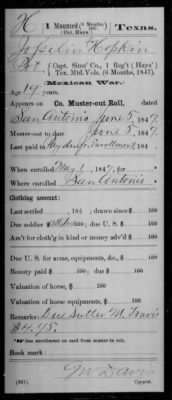 H 1 Mounted (6 Months, 1847) Texas.
Vol. Mex'n
Hopkin
Pvt., Capt. Sims' Co., 1 Reg't (Hays')
Tex. Mtd. Vols. (6 Months, 1847).
Mexican War.
Age 19 years.
Appears on Co. Muster-out Roll, dated
San Antonio June 5, 1847.
Muster-out to date June 5, 1847.
Last paid to Enrollment, 184
When enrolled May 1, 1847, for
Where enrolled San Antonio
Clothing account:
Last settled 184 ; drawn since $ 100
Due soldier $ 100 ; due U. S. $ 100
Am't for cloth'g in kind or money adv'd $ 100
Due U. S. for arms, equipments, &c., $ 100
Bounty paid $ 100 ; due $ 100
Valuation of horse, $ 100
Valuation of horse equipments, $ 100
Remarks: Due Sutler M. Travis
$4.75.
*See enrollment on card from muster-in roll.
Book mark:
(361) Copyist.